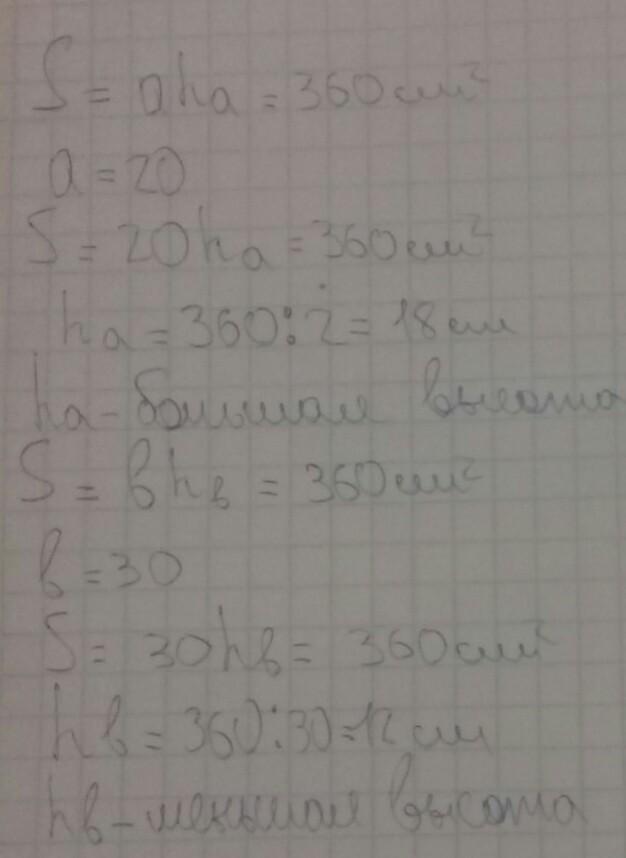 S = aha = 360 см²
a = 20
S = 20ha = 360 см²
ha = 360 : 2 = 18 см
ha - большая высота
S = вhв = 360 см²
в = 30
S = 30hв = 360 см²
hв = 360 : 30 = 12 см
hв - меньшая высота